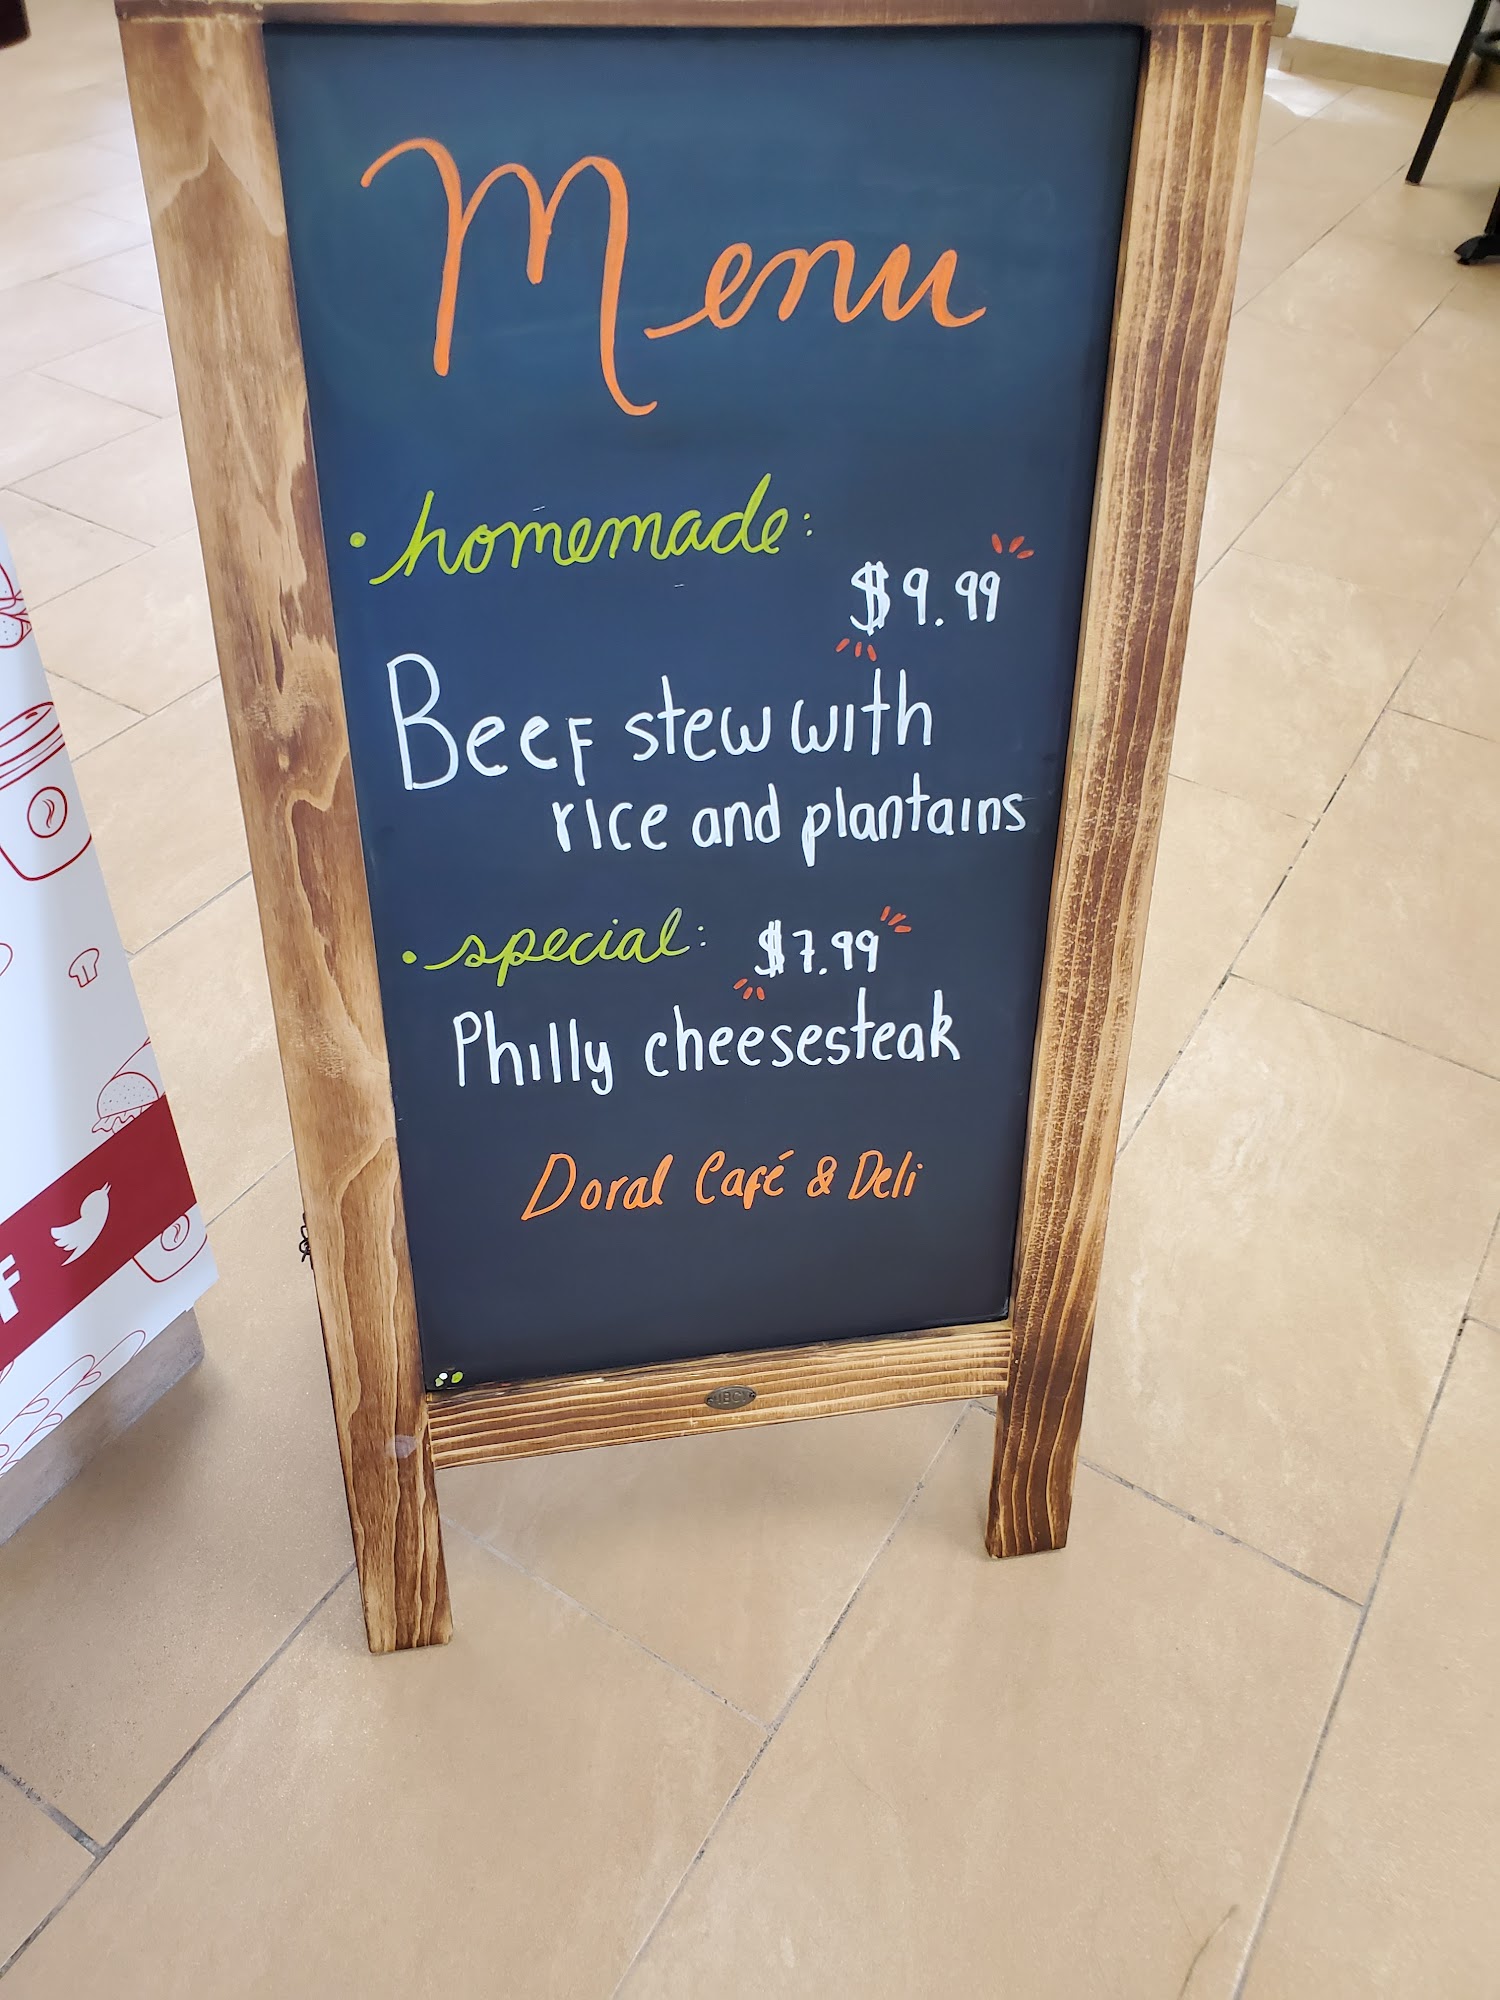 Menu
• homemade:
$9.99
Beef stew with
rice and plantains
• special: $7.99
Philly cheesesteak
Doral Café & Deli